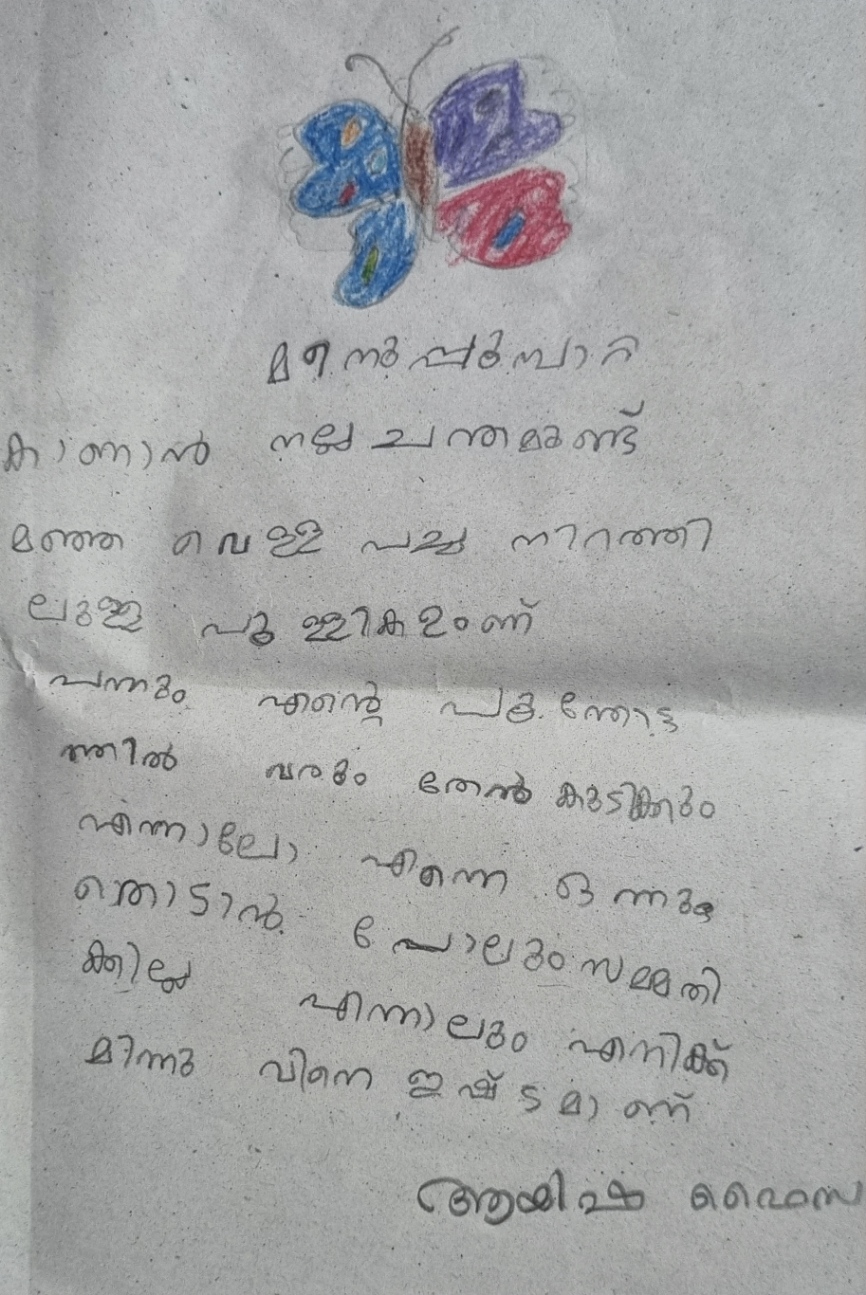 മിന്നുപ്പൂമ്പാറ്റ
കാണാൻ നല്ല ചന്തമുണ്ട്
മഞ്ഞ വെള്ള പച്ച നിറത്തി
ലുള്ള പുള്ളികളാണ്
എന്നും എന്റെ പൂന്തോട്ട
ത്തിൽ വരും തേൻ കുടിക്കും
എന്നാലോ എന്നെ ഒന്നു
തൊടാൻ പോലും സമ്മതി
ക്കില്ല എന്നാലും എനിക്ക്
മിന്നു വിനെ ഇഷ്ടമാണ്
ആയിഷ ഫൈസ